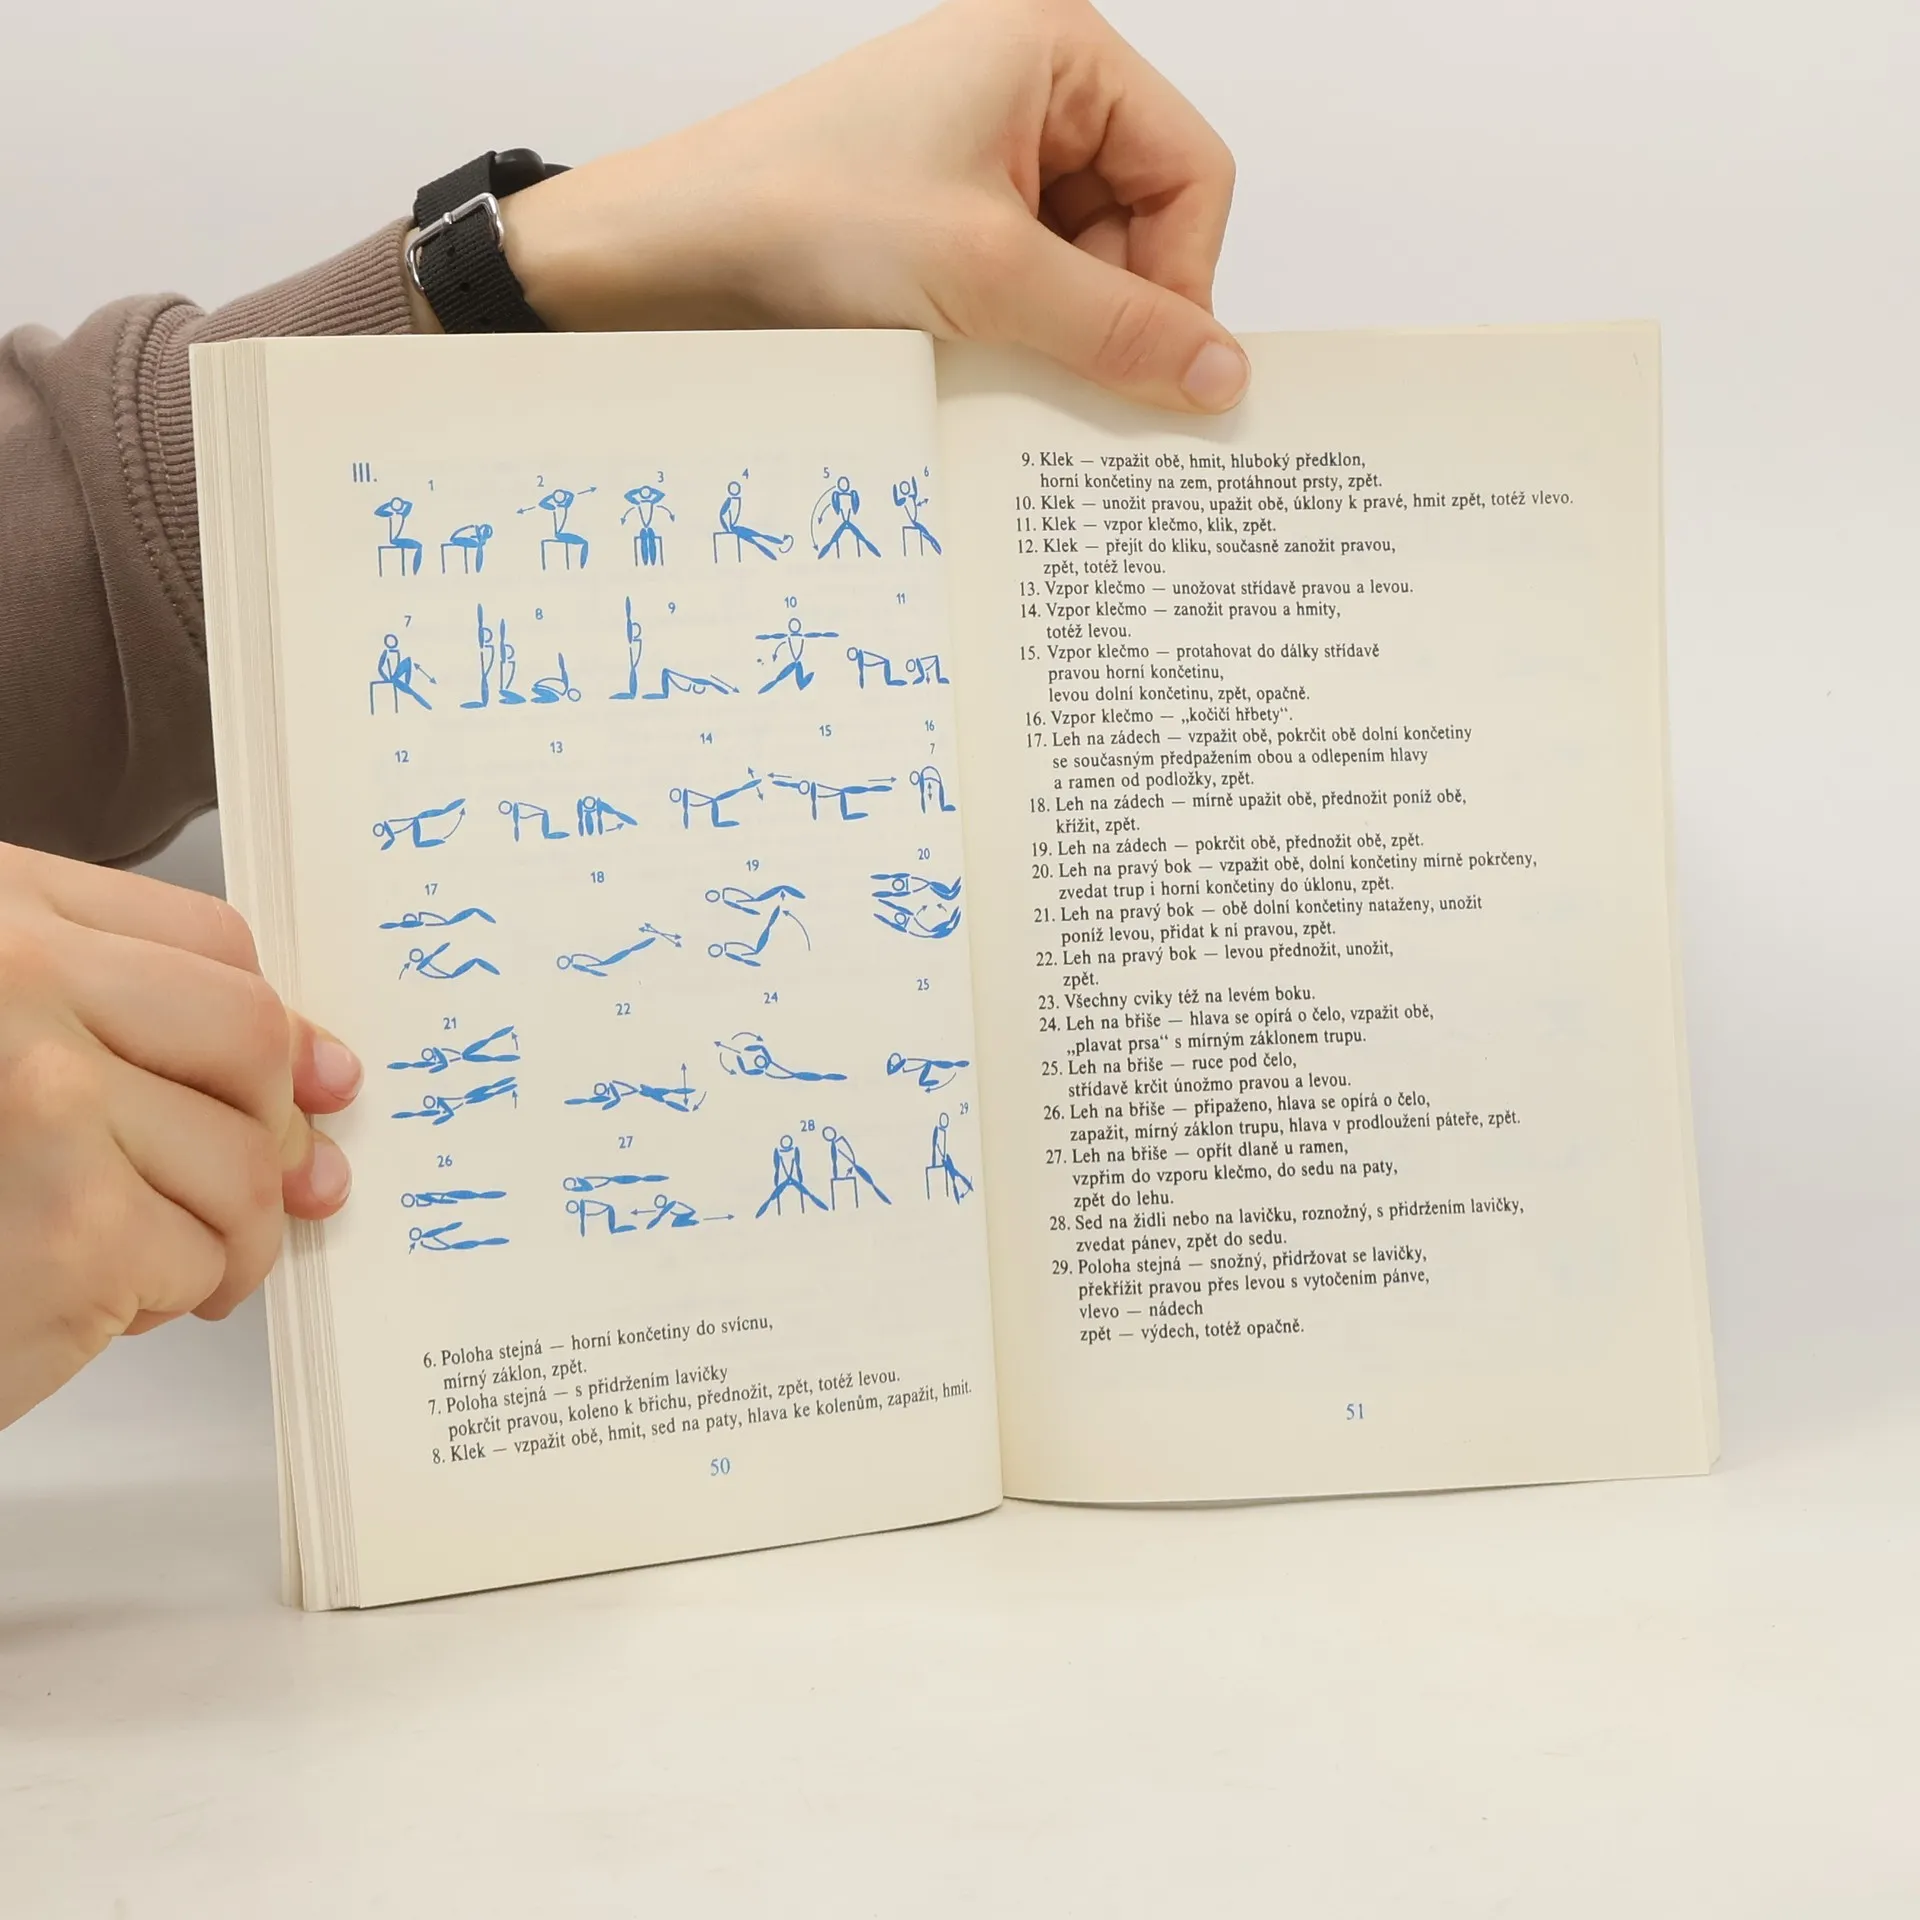 III.
1 2 3 4 5 6
7 8 9 10 11
12 13 14 15 16
7
17 18 19 20
21 22 24 25
26 27 28 29
6. Poloha stejná — horní končetiny do svícnu,
mírný záklon, zpět.
7. Poloha stejná — s přidržením lavičky
pokrčit pravou, koleno k břichu, přednožit, zpět, totéž levou.
8. Klek — vzpažit obě, hmit, sed na paty, hlava ke kolenům, zapažit, hmit.
50
9. Klek — vzpažit obě, hmit, hluboký předklon,
horní končetiny na zem, protáhnout prsty, zpět.
10. Klek — unožit pravou, upažit obě, úklony k pravé, hmit zpět, totéž vlevo.
11. Klek — vzpor klečmo, klik, zpět.
12. Klek — přejít do kliku, současně zanožit pravou,
zpět, totéž levou.
13. Vzpor klečmo — unožovat střídavě pravou a levou.
14. Vzpor klečmo — zanožit pravou a hmity,
totéž levou.
15. Vzpor klečmo — protahovat do dálky střídavě
pravou horní končetinu,
levou dolní končetinu, zpět, opačně.
16. Vzpor klečmo — „kočičí hřbety“.
17. Leh na zádech — vzpažit obě, pokrčit obě dolní končetiny
se současným předpažením obou a odlepením hlavy
a ramen od podložky, zpět.
18. Leh na zádech — mírně upažit obě, přednožit poníž obě,
křížit, zpět.
19. Leh na zádech — pokrčit obě, přednožit obě, zpět.
20. Leh na pravý bok — vzpažit obě, dolní končetiny mírně pokrčeny,
zvedat trup i horní končetiny do úklonu, zpět.
21. Leh na pravý bok — obě dolní končetiny nataženy, unožit
poníž levou, přidat k ní pravou, zpět.
22. Leh na pravý bok — levou přednožit, unožit,
zpět.
23. Všechny cviky též na levém boku.
24. Leh na břiše — hlava se opírá o čelo, vzpažit obě,
„plavat prsa“ s mírným záklonem trupu.
25. Leh na břiše — ruce pod čelo,
střídavě krčit únožmo pravou a levou.
26. Leh na břiše — připaženo, hlava se opírá o čelo,
zapažit, mírný záklon trupu, hlava v prodloužení páteře, zpět.
27. Leh na břiše — opřít dlaně u ramen,
vzpřim do vzporu klečmo, do sedu na paty,
zpět do lehu.
28. Sed na židli nebo na lavičku, roznožný, s přidržením lavičky,
zvedat pánev, zpět do sedu.
29. Poloha stejná — snožný, přidržovat se lavičky,
překřížit pravou přes levou s vytočením pánve,
vlevo — nádech
zpět — výdech, totéž opačně.
51